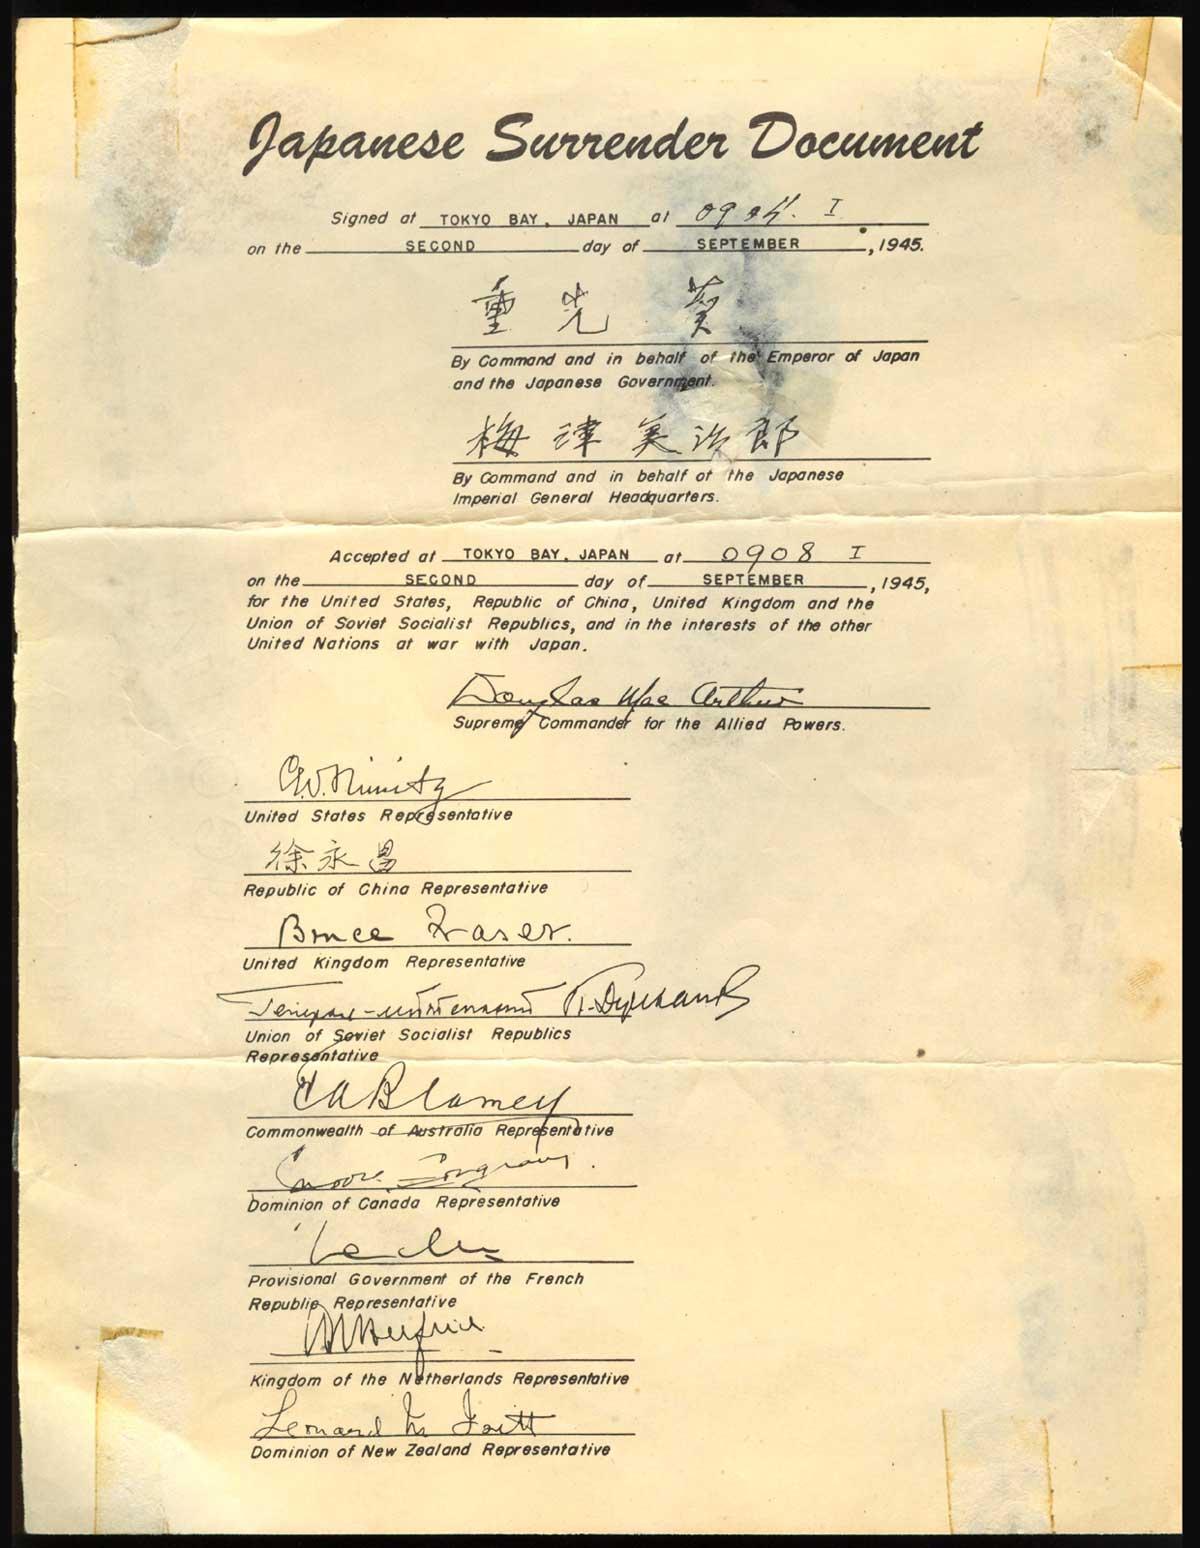 Japanese Surrender Document
Signed at TOKYO BAY, JAPAN at 0904 I
on the SECOND day of SEPTEMBER, 1945.
重光 葵
By Command and in behalf of the Emperor of Japan
and the Japanese Government.
梅津美治郎
By Command and in behalf of the Japanese
Imperial General Headquarters.
Accepted at TOKYO BAY, JAPAN at 0908 I
on the SECOND day of SEPTEMBER, 1945,
for the United States, Republic of China, United Kingdom and the
Union of Soviet Socialist Republics, and in the interests of the other
United Nations at war with Japan.
Douglas MacArthur
Supreme Commander for the Allied Powers.
C.W. Nimitz
United States Representative
徐永昌
Republic of China Representative
Bruce Fraser.
United Kingdom Representative
Генерал-лейтенант
Union of Soviet Socialist Republics
Representative
T A Blamey
Commonwealth of Australia Representative
Dominion of Canada Representative
Provisional Government of the French
Republic Representative
Kingdom of the Netherlands Representative
Leonard M Isitt
Dominion of New Zealand Representative